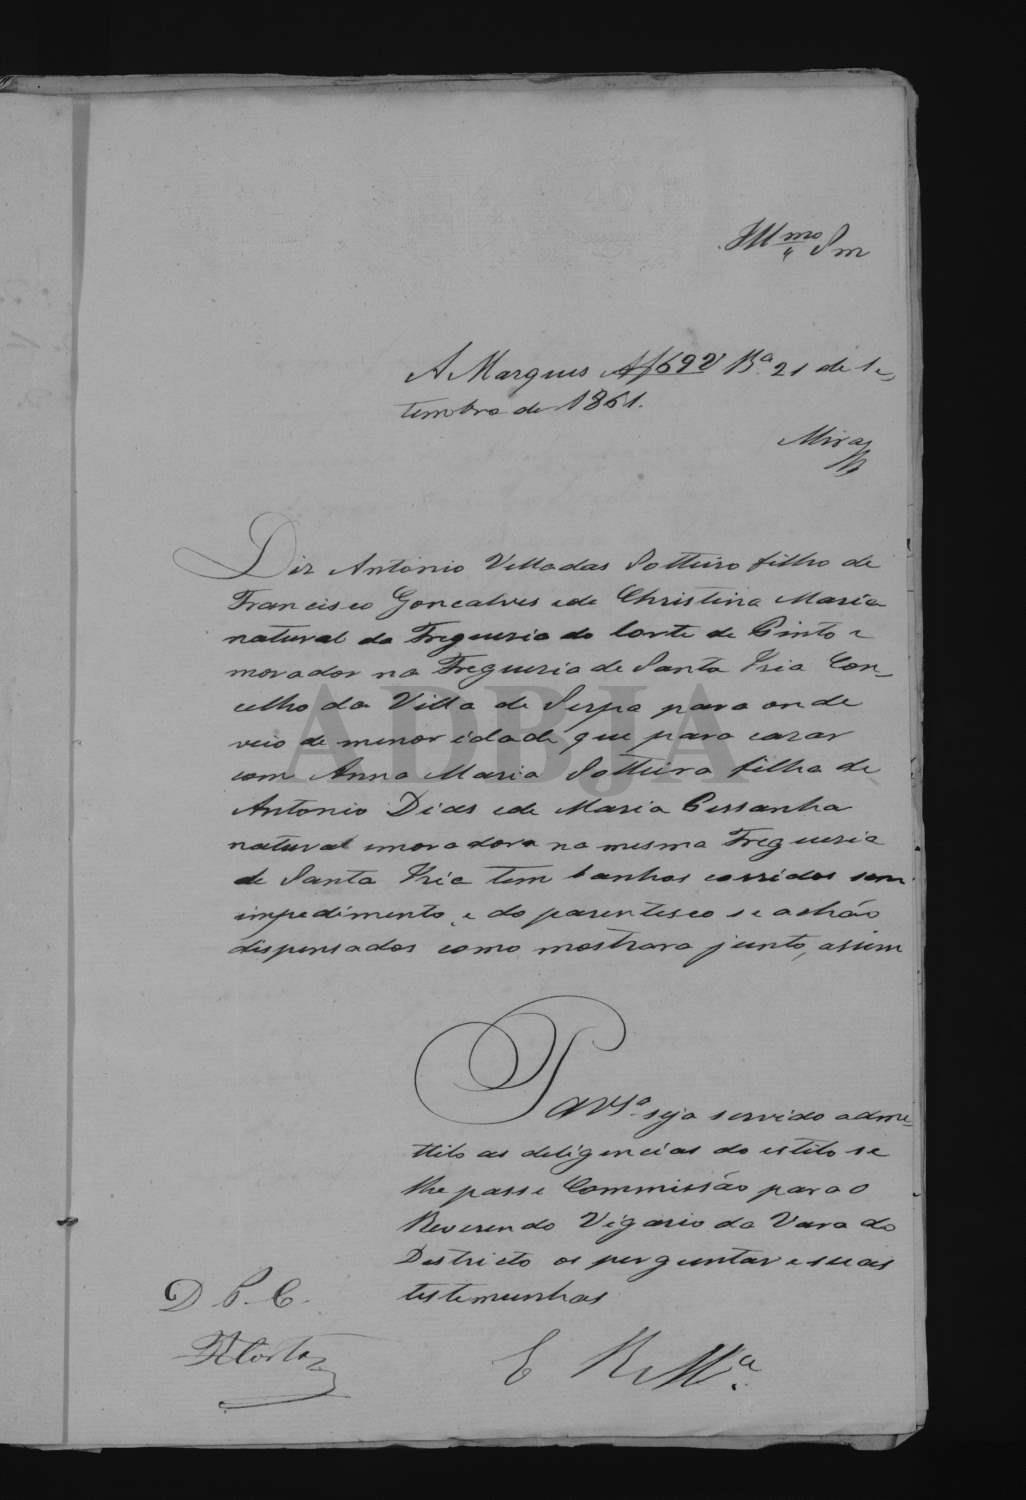 Illmo Snr
A Marques Af692 Ba. 21 de Se
tembro de 1861.
Mira
Diz Antonio Velladas Solteiro filho de
Francisco Goncalves ede Christina Maria
natural da Freguesia do Corte de Pinto e
morador na Freguesia de Santa Iria Con-
celho da Villa de Serpa para onde
veio de menor idade que para cazar
com Anna Maria Solteira filha de
Antonio Dias ede Maria Pessanha
natural emoradora na mesma Freguesia
de Santa Iria tem banhos corridos sem
impedimento, e do parentesco se achão
dispensados como mostrara junto, assim
P a VSa. seja servido adme-
ttilo as deligencias do estilo se
lhe passe Commissão para o
Reverendo Vigario da Vara do
Destricto os perguntar e suas
testemunhas
D P. C.
E R Mca.
ADBJA